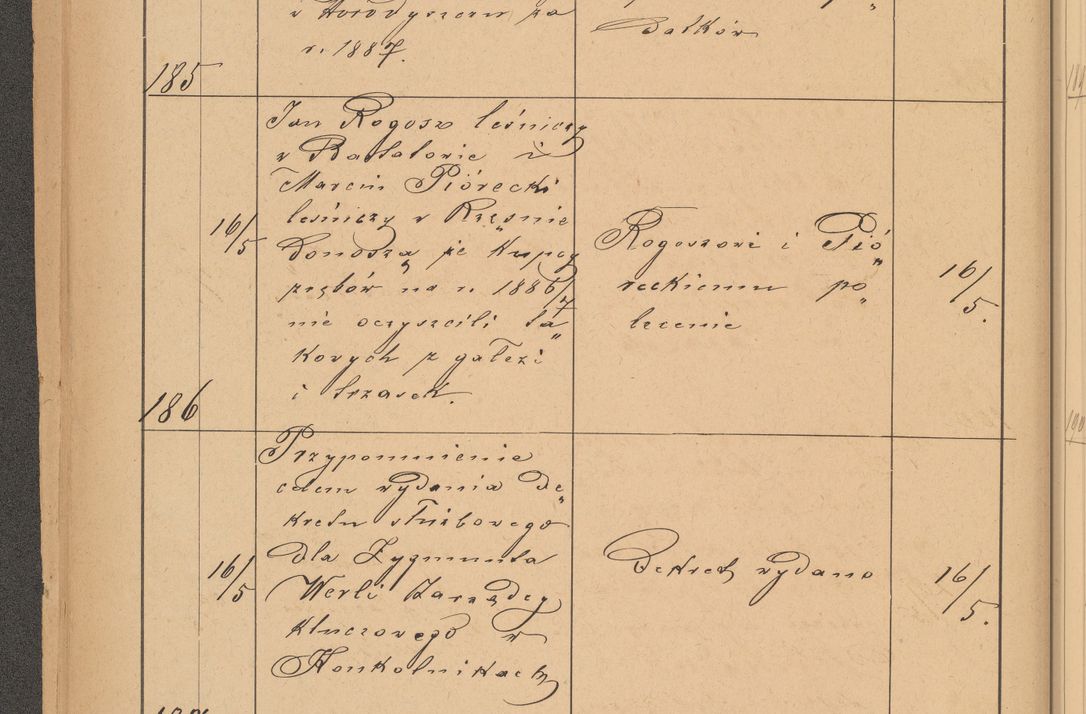 w Horodyszczu za
r. 1887.
Batków
185
Jan Rogosz leśniczy
w Bartatowie i
Marcin Piórecki
leśniczy w Rzęśnie
16/5
donoszą że Kupcy
zrębów na r. 1886/7
nie oczyscili ta„
kowych z gałezi
i trzasek.
Rogoszowi i Pió„
reckiemu po„
lecenie
16/5.
186
Przypomnienie
celem wydania De„
kretu służbowego
dla Zygmunta
16/5
Werli Zarządcy
kluczowego w
Honkolnikach
Dekret wydano
16/5.